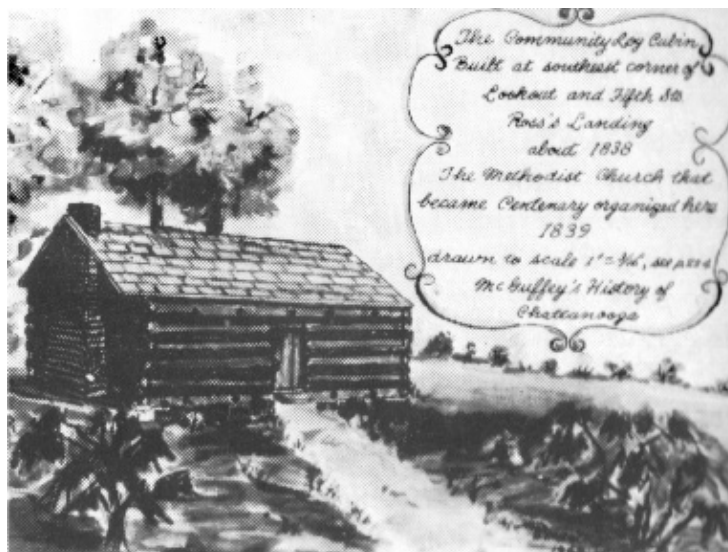 The Community Log Cabin
Built at southeast corner of
Lookout and Fifth Sts
Ross's Landing
about 1838
The Methodist Church that
became Centenary organized here
1839
drawn to scale 1" = see
McGuffey's History of
Chattanooga